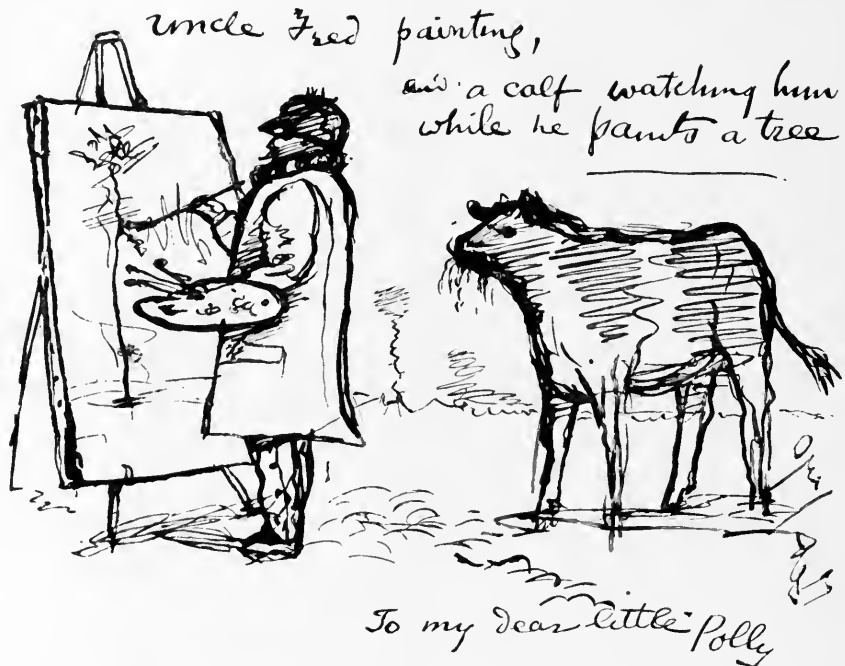 Uncle Fred painting,
and a calf watching him
while he paints a tree
To my dear little Polly